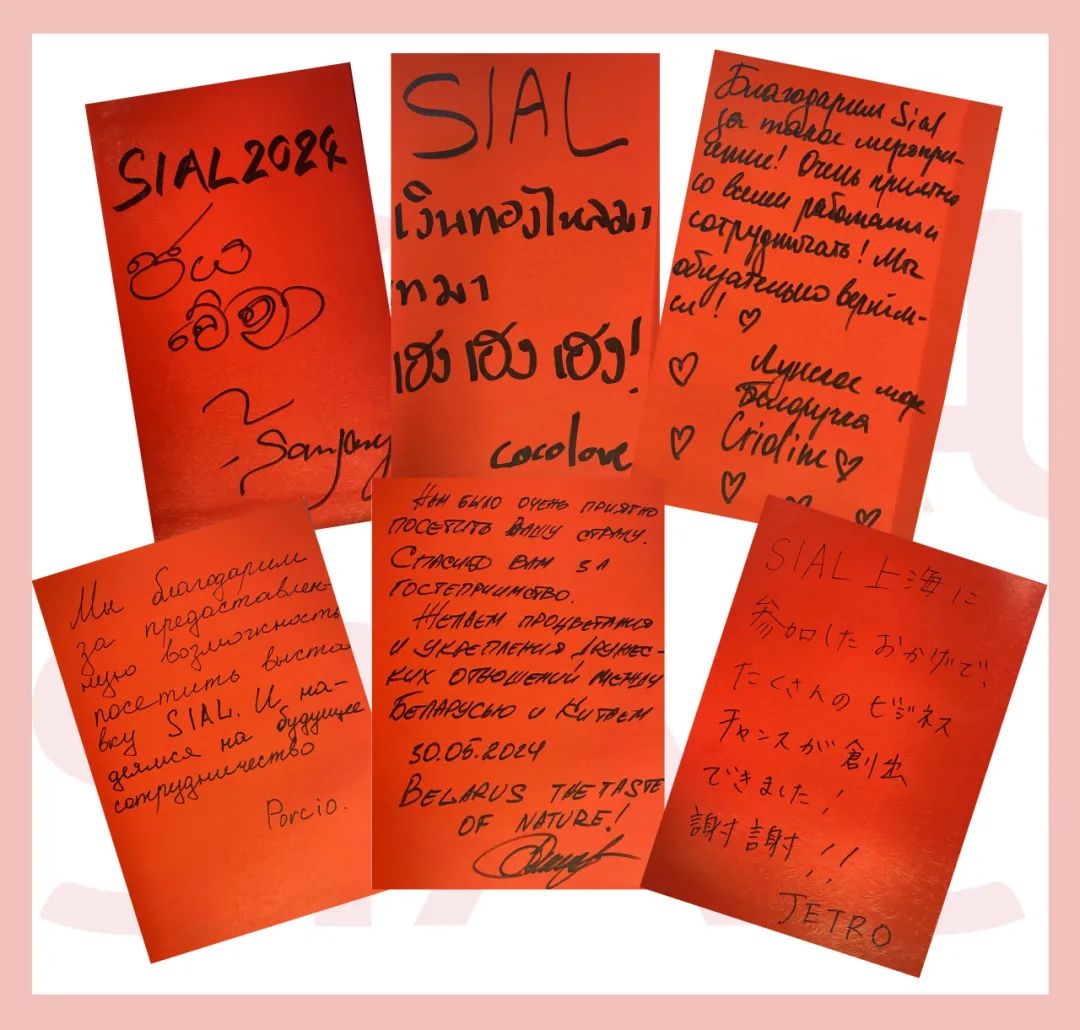 SIAL2024
ජය
වේවා
SIAL
เงินทองไหลมา
ทมา
เฮง เฮง เฮง!
cocolove
Благодарим Sial
за такое меропри-
ятие! Очень приятно
со всеми
сотрудничать! Мы
обязательно вернём-
ся! ♡
Лунское море
Белоручка
Cridine ♡
Мы благодарим
за предоставлен-
ную возможность
посетить выста
вку SIAL. И на-
деямся на будущее
сотрудничество
Porcio.
Нам было очень приятно
посетить Вашу страну.
Спасибо вам за
гостеприимство.
Желаем процветания
и укрепления дружес-
ких отношений между
Беларусью и Китаем
30.05.2024
BELARUS THE TASTE
OF NATURE!
SIAL 上海に
参加したおかげで、
たくさんの ビジネス
チャンスが創出
できました!
謝謝!!
JETRO